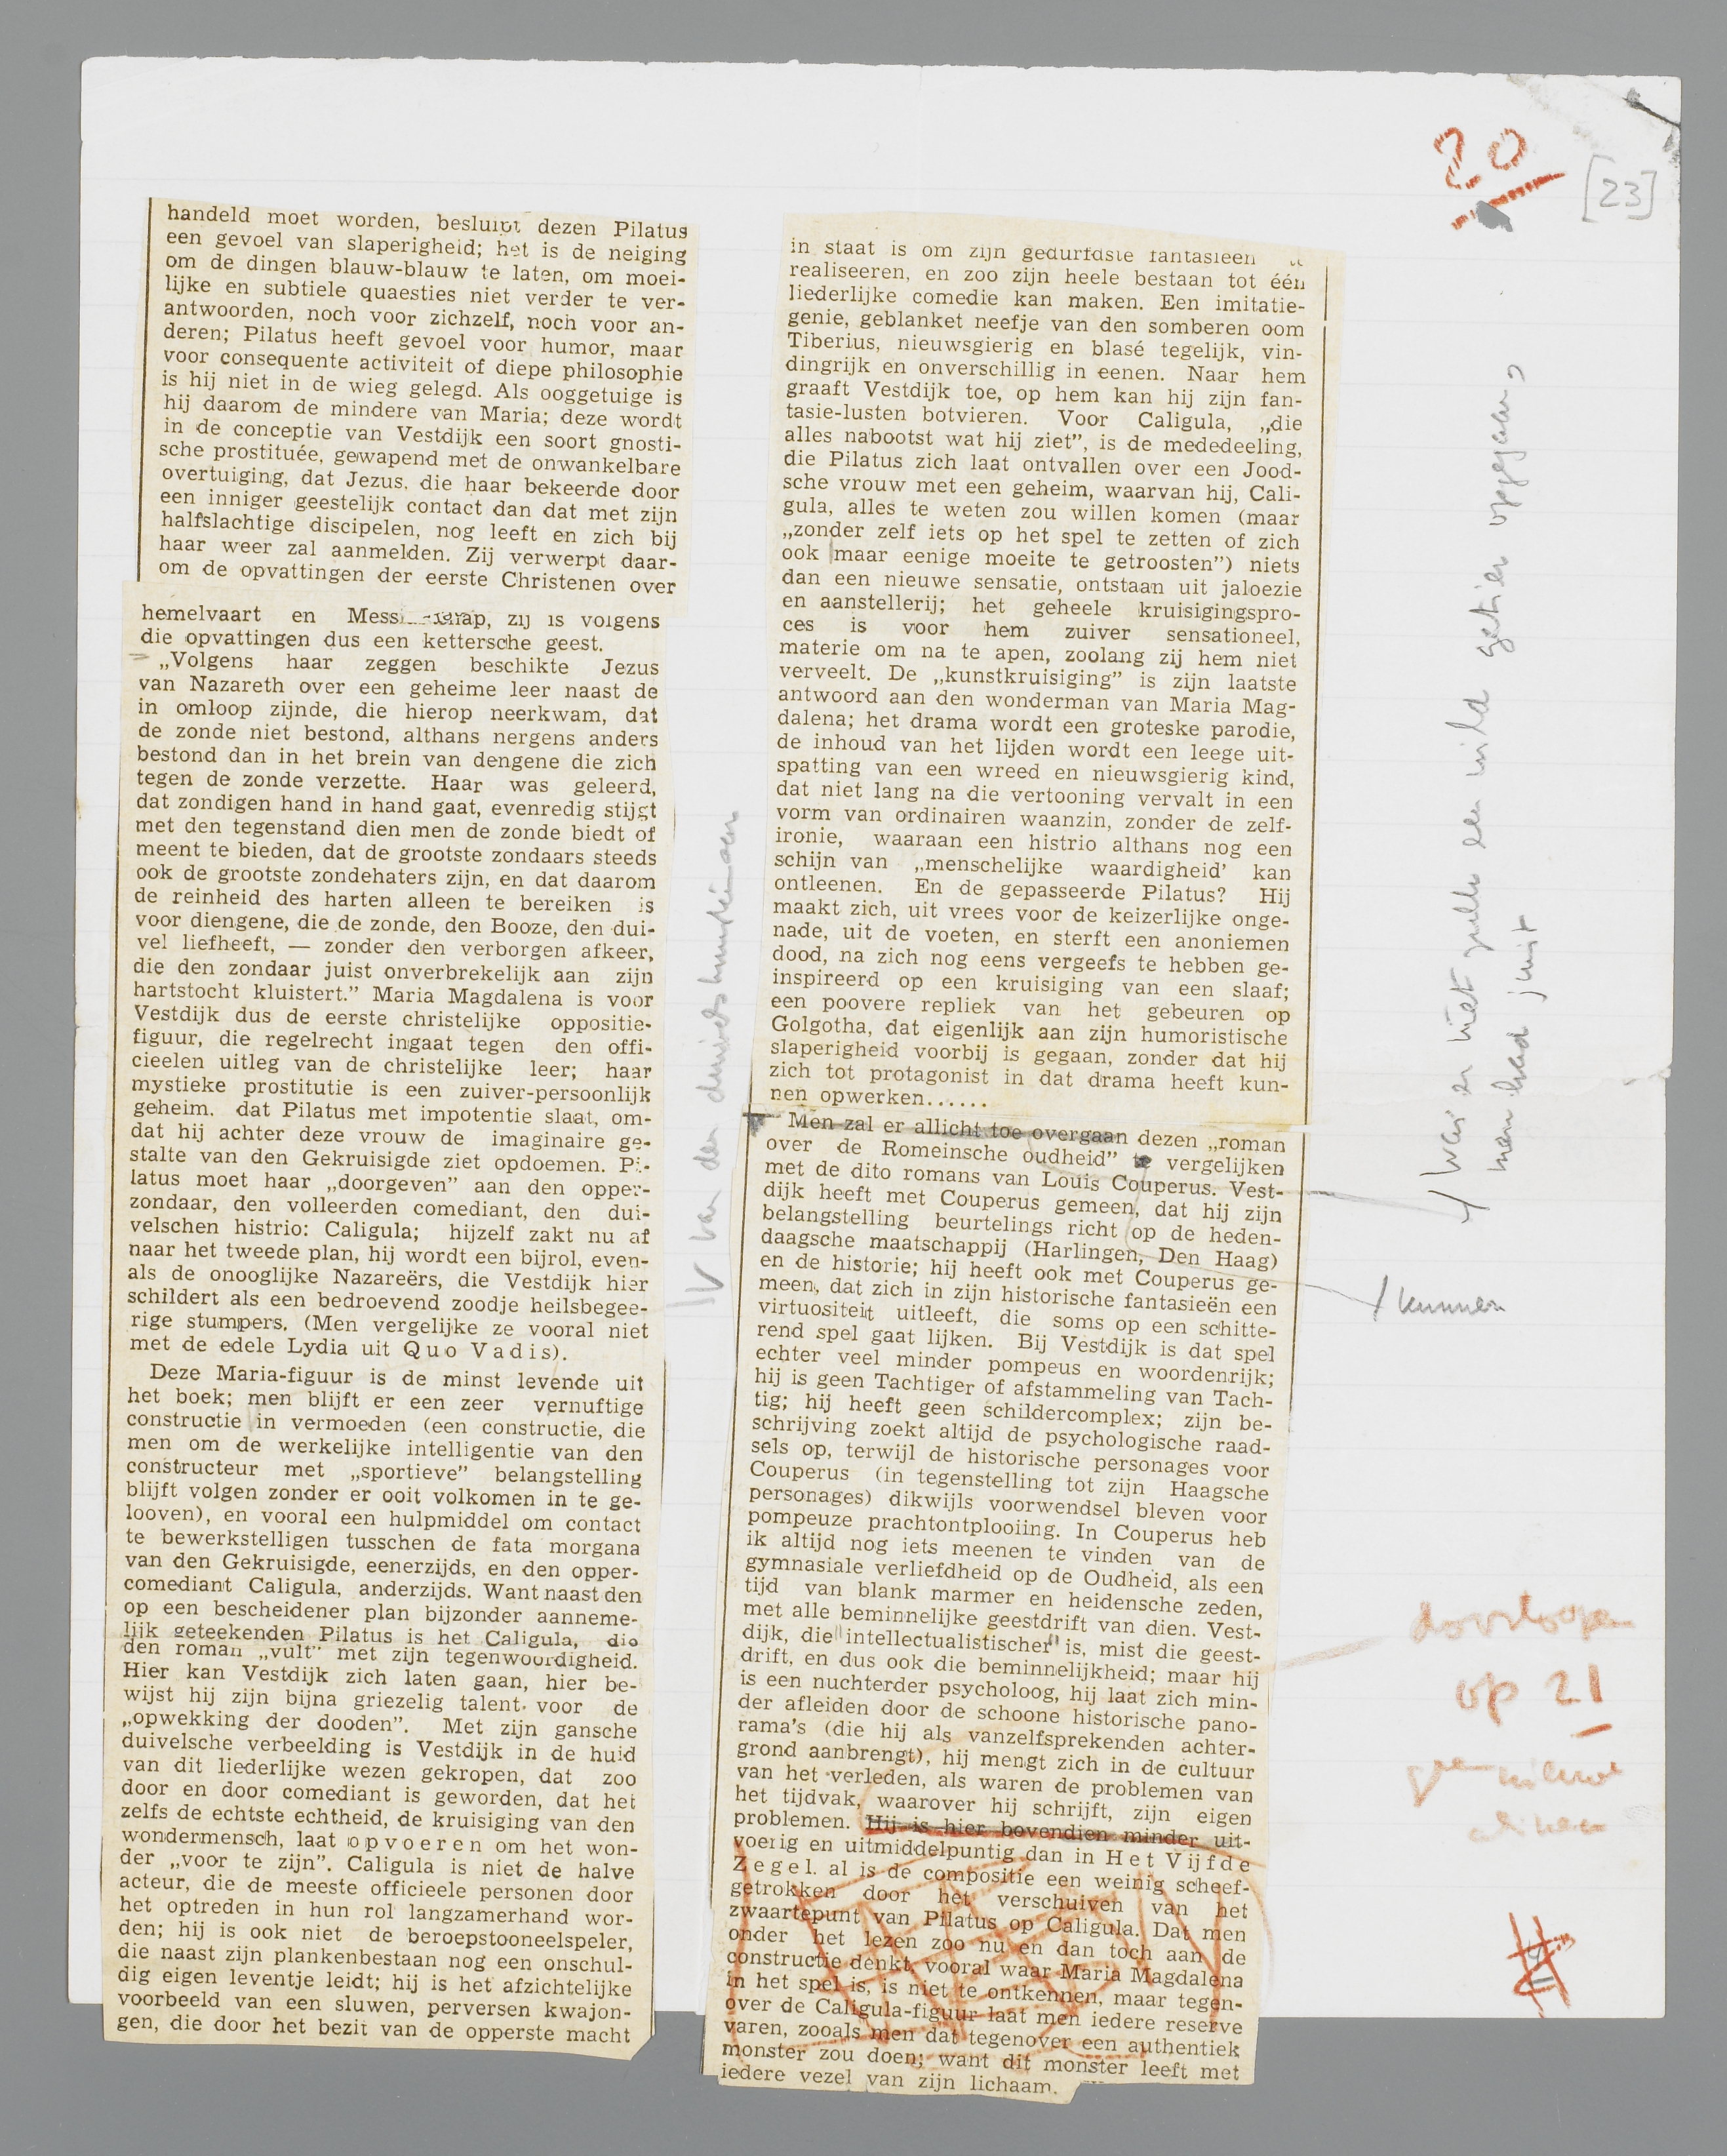 20
[23]
handeld moet worden, besluipt dezen Pilatus
een gevoel van slaperigheid; het is de neiging
om de dingen blauw-blauw te laten, om moei-
lijke en subtiele quaesties niet verder te ver-
antwoorden, noch voor zichzelf, noch voor an-
deren; Pilatus heeft gevoel voor humor, maar
voor consequente activiteit of diepe philosophie
is hij niet in de wieg gelegd. Als ooggetuige is
hij daarom de mindere van Maria; deze wordt
in de conceptie van Vestdijk een soort gnosti-
sche prostituée, gewapend met de onwankelbare
overtuiging, dat Jezus, die haar bekeerde door
een inniger geestelijk contact dan dat met zijn
halfslachtige discipelen, nog leeft en zich bij
haar weer zal aanmelden. Zij verwerpt daar-
om de opvattingen der eerste Christenen over
hemelvaart en zij is volgens
die opvattingen dus een kettersche geest.
„Volgens haar zeggen beschikte Jezus
van Nazareth over een geheime leer naast de
in omloop zijnde, die hierop neerkwam, dat
de zonde niet bestond, althans nergens anders
bestond dan in het brein van dengene die zich
tegen de zonde verzette. Haar was geleerd,
dat zondigen hand in hand gaat, evenredig stijgt
met den tegenstand dien men de zonde biedt of
meent te bieden, dat de grootste zondaars steeds
ook de grootste zondehaters zijn, en dat daarom
de reinheid des harten alleen te bereiken is
voor diengene, die de zonde, den Booze, den dui-
vel liefheeft, — zonder den verborgen afkeer,
die den zondaar juist onverbrekelijk aan zijn
hartstocht kluistert.” Maria Magdalena is voor
Vestdijk dus de eerste christelijke oppositie-
figuur, die regelrecht ingaat tegen den offi-
cieelen uitleg van de christelijke leer; haar
mystieke prostitutie is een zuiver-persoonlijk
geheim. dat Pilatus met impotentie slaat, om-
dat hij achter deze vrouw de imaginaire ge-
stalte van den Gekruisigde ziet opdoemen. Pi-
latus moet haar „doorgeven” aan den opper-
zondaar, den volleerden comediant, den dui-
velschen histrio: Caligula; hijzelf zakt nu af
naar het tweede plan, hij wordt een bijrol, even-
als de onooglijke Nazareërs, die Vestdijk hier
schildert als een bedroevend zoodje heilsbegee-
rige stumpers. (Men vergelijke ze vooral niet
met de edele Lydia uit Quo Vadis).
Deze Maria-figuur is de minst levende uit
het boek; men blijft er een zeer vernuftige
constructie in vermoeden (een constructie, die
men om de werkelijke intelligentie van den
constructeur met „sportieve” belangstelling
blijft volgen zonder er ooit volkomen in te ge-
looven), en vooral een hulpmiddel om contact
te bewerkstelligen tusschen de fata morgana
van den Gekruisigde, eenerzijds, en den opper-
comediant Caligula, anderzijds. Want naast den
op een bescheidener plan bijzonder aanneme-
lijk geteekenden Pilatus is het Caligula, die
den roman „vult” met zijn tegenwoordigheid.
Hier kan Vestdijk zich laten gaan, hier be-
wijst hij zijn bijna griezelig talent voor de
„opwekking der dooden”. Met zijn gansche
duivelsche verbeelding is Vestdijk in de huid
van dit liederlijke wezen gekropen, dat zoo
door en door comediant is geworden, dat het
zelfs de echtste echtheid, de kruisiging van den
wondermensch, laat opvoeren om het won-
der „voor te zijn”. Caligula is niet de halve
acteur, die de meeste officieele personen door
het optreden in hun rol langzamerhand wor-
den; hij is ook niet de beroepstooneelspeler,
die naast zijn plankenbestaan nog een onschul-
dig eigen leventje leidt; hij is het afzichtelijke
voorbeeld van een sluwen, perversen kwajon-
gen, die door het bezit van de opperste macht
van den
in staat is om zijn gedurfdste fantasieën te
realiseeren, en zoo zijn heele bestaan tot één
liederlijke comedie kan maken. Een imitatie-
genie, geblanket neefje van den somberen oom
Tiberius, nieuwsgierig en blasé tegelijk, vin-
dingrijk en onverschillig in eenen. Naar hem
graaft Vestdijk toe, op hem kan hij zijn fan-
tasie-lusten botvieren. Voor Caligula, „die
alles nabootst wat hij ziet”, is de mededeeling,
die Pilatus zich laat ontvallen over een Jood-
sche vrouw met een geheim, waarvan hij, Cali-
gula, alles te weten zou willen komen (maar
„zonder zelf iets op het spel te zetten of zich
ook maar eenige moeite te getroosten”) niets
dan een nieuwe sensatie, ontstaan uit jaloezie
en aanstellerij; het geheele kruisigingspro-
ces is voor hem zuiver sensationeel,
materie om na te apen, zoolang zij hem niet
verveelt. De „kunstkruisiging” is zijn laatste
antwoord aan den wonderman van Maria Mag-
dalena; het drama wordt een groteske parodie,
de inhoud van het lijden wordt een leege uit-
spatting van een wreed en nieuwsgierig kind,
dat niet lang na die vertooning vervalt in een
vorm van ordinairen waanzin, zonder de zelf-
ironie, waaraan een histrio althans nog een
schijn van „menschelijke waardigheid’ kan
ontleenen. En de gepasseerde Pilatus? Hij
maakt zich, uit vrees voor de keizerlijke onge-
nade, uit de voeten, en sterft een anoniemen
dood, na zich nog eens vergeefs te hebben ge-
inspireerd op een kruisiging van een slaaf;
een poovere repliek van het gebeuren op
Golgotha, dat eigenlijk aan zijn humoristische
slaperigheid voorbij is gegaan, zonder dat hij
zich tot protagonist in dat drama heeft kun-
nen opwerken......
Men zal er allicht toe overgaan dezen „roman
over de Romeinsche oudheid” te vergelijken
met de dito romans van Louis Couperus. Vest-
dijk heeft met Couperus gemeen, dat hij zijn
belangstelling beurtelings richt op de heden-
daagsche maatschappij (Harlingen, Den Haag)
en de historie; hij heeft ook met Couperus ge-
meen, dat zich in zijn historische fantasieën een
virtuositeit uitleeft, die soms op een schitte-
rend spel gaat lijken. Bij Vestdijk is dat spel
echter veel minder pompeus en woordenrijk;
hij is geen Tachtiger of afstammeling van Tach-
tig; hij heeft geen schildercomplex; zijn be-
schrijving zoekt altijd de psychologische raad-
sels op, terwijl de historische personages voor
Couperus (in tegenstelling tot zijn Haagsche
personages) dikwijls voorwendsel bleven voor
pompeuze prachtontplooiing. In Couperus heb
ik altijd nog iets meenen te vinden van de
gymnasiale verliefdheid op de Oudheid, als een
tijd van blank marmer en heidensche zeden,
met alle beminnelijke geestdrift van dien. Vest-
dijk, die "intellectualistischer" is, mist die geest-
drift, en dus ook die beminnelijkheid; maar hij
is een nuchterder psycholoog, hij laat zich min-
der afleiden door de schoone historische pano-
rama's (die hij als vanzelfsprekenden achter-
grond aanbrengt), hij mengt zich in de cultuur
van het verleden, als waren de problemen van
het tijdvak, waarover hij schrijft, zijn eigen
problemen. Hij is hier bovendien minder uit-
voerig en uitmiddelpuntig dan in Het Vijfde
Zegel. al is de compositie een weinig scheef-
getrokken door het verschuiven van het
zwaartepunt van Pilatus op Caligula. Dat men
onder het lezen zoo nu en dan toch aan de
constructie denkt, vooral waar Maria Magdalena
in het spel is, is niet te ontkennen, maar tegen-
over de Caligula-figuur laat men iedere reserve
varen, zooals men dat tegenover een authentiek
monster zou doen; want dit monster leeft met
iedere vezel van zijn lichaam.
er niet een wild opgegaan,
men had juist
kunnen
doorloopen
op 21
geen nieuwe
alinea